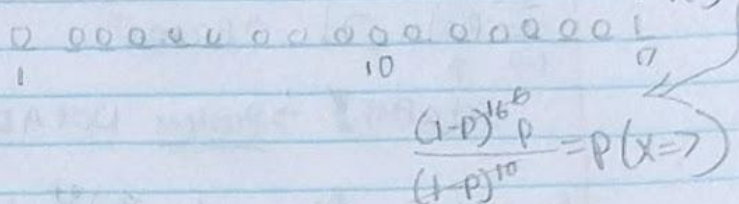 0 0 0 0 0 0 0 0 0 0 0 0 0 0 0 0 1
1 10 17
(1-p)^16 6 p
/ (1-p)^10 = P(x=7)